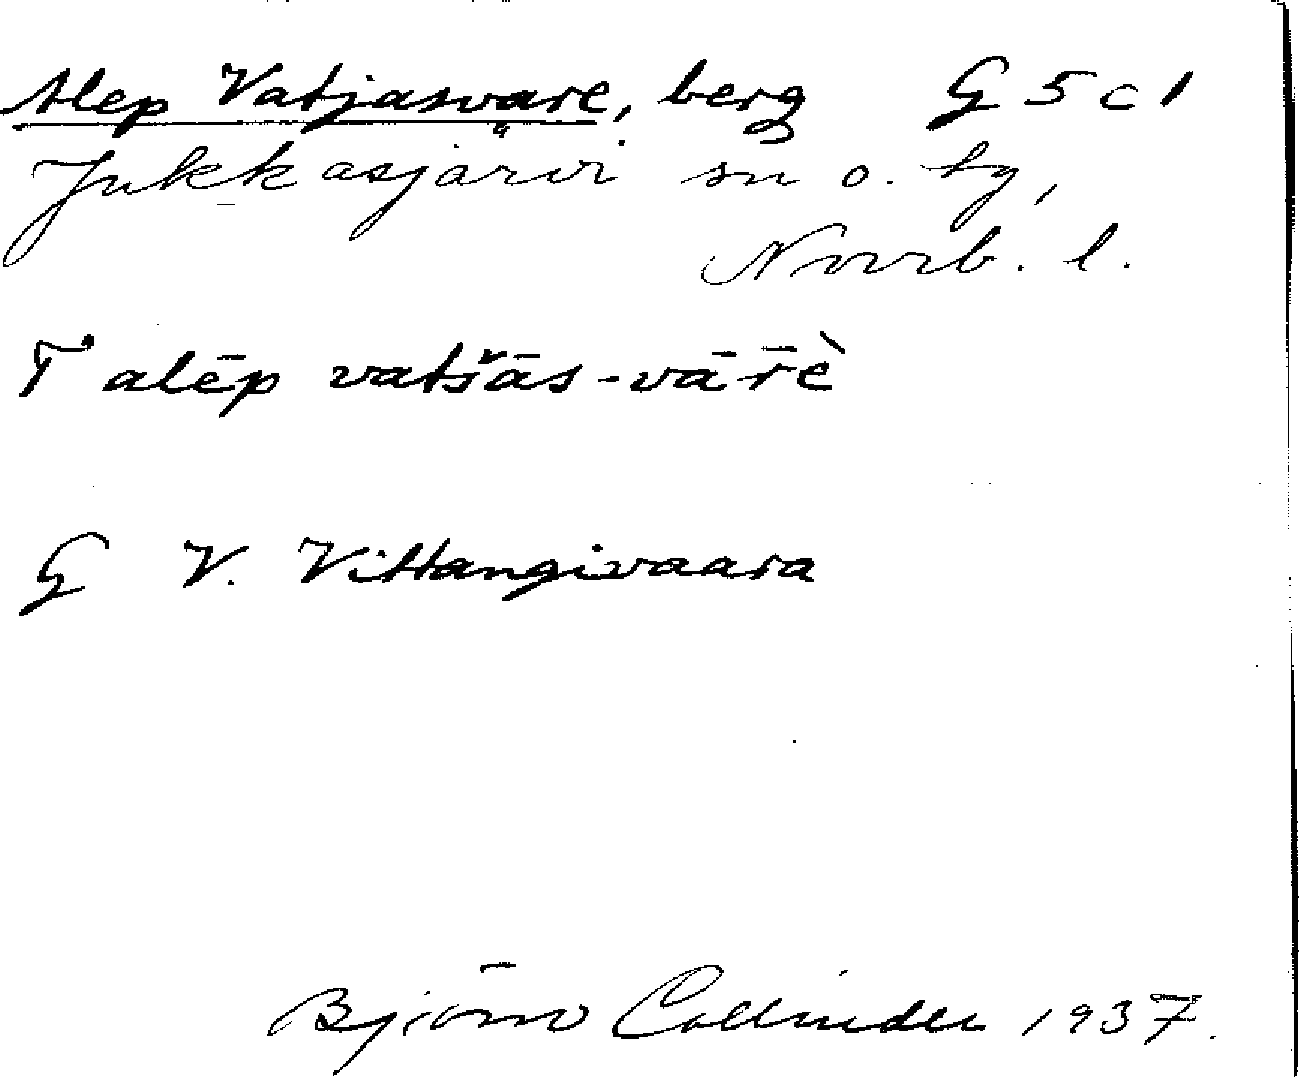 Alep Vatjasvare, berg G 5 c 1
Jukkasjärvi sn o. tg,
Norrb. l.
T alēp vatšās-vār̄ḕ
G V. Vittangivaara
Björn Collinder 1937.